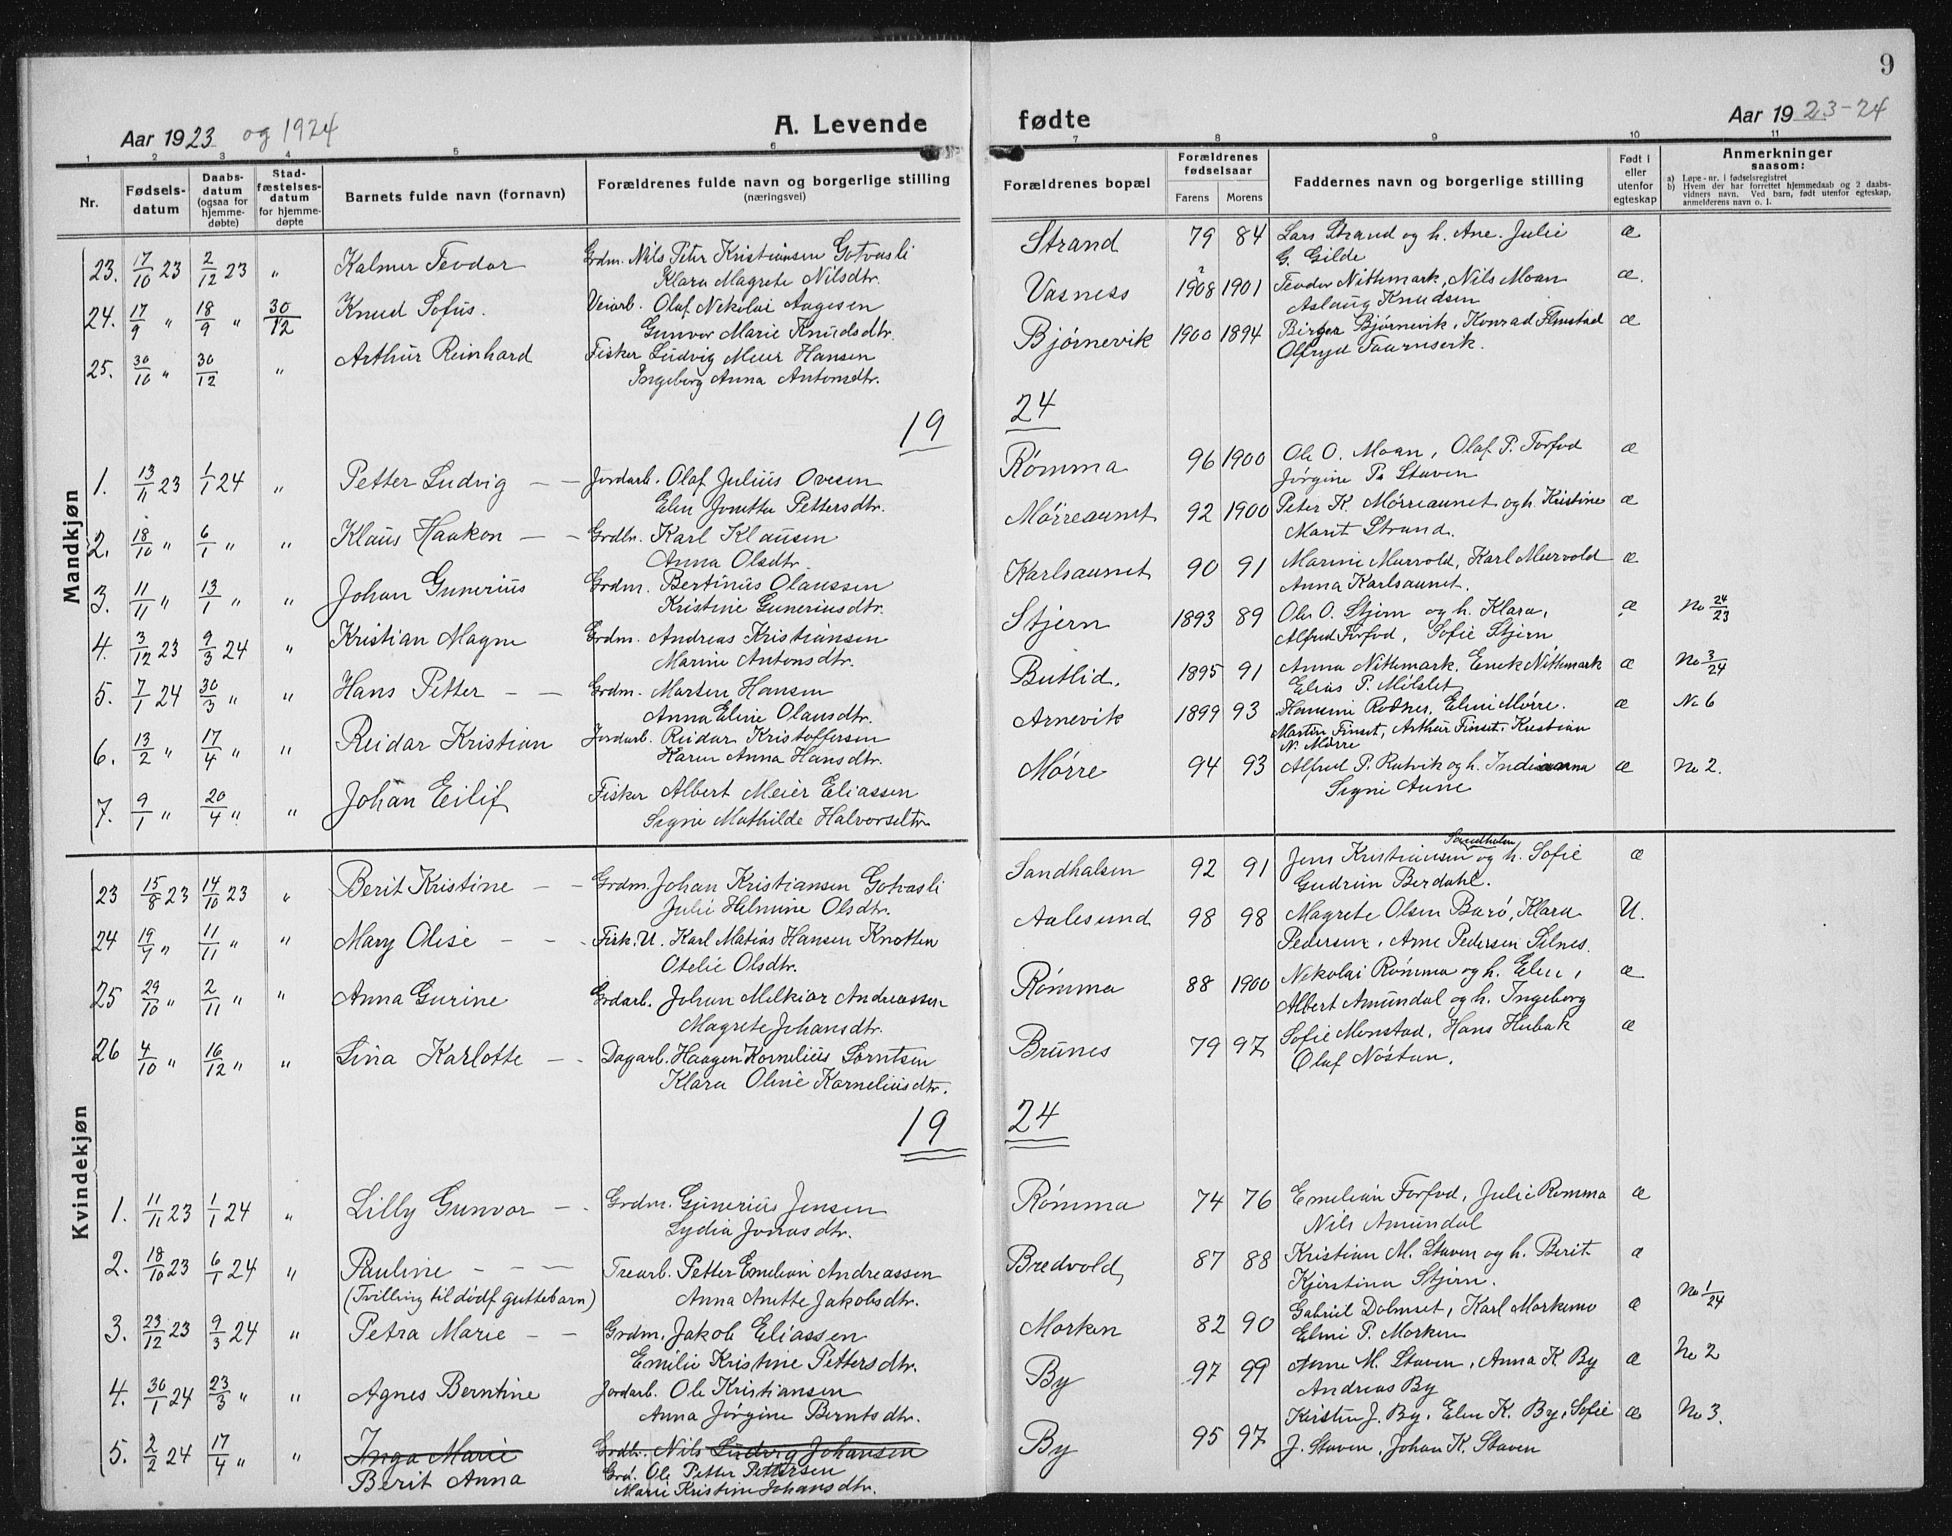 Aar 1923 og 1924
A. Levende
fødte
Aar 1923-24
9
1 2 3 4 5 6 7 8 9 10 11
Nr.
Fødsels-
datum
Daabs-
datum
(ogsaa for
hjemme-
døbte)
Stad-
fæstelses-
datum
for hjemme-
døpte
Barnets fulde navn (fornavn)
Forældrenes fulde navn og borgerlige stilling
(næringsvei)
Forældrenes bopæl
Forældrenes
fødselsaar
Farens Morens
Faddernes navn og borgerlige stilling
Født i
eller
utenfor
egteskap
Anmerkninger
saasom:
a) Løpe-nr. i fødselsregistret
b) Hvem der har forrettet hjemmedaab og 2 daabs-
vidners navn. Ved barn, født utenfor egteskap,
anmelderens navn o. l.
Mandkjøn
23. 17/10 23 2/12 23 " Kalmer Teodor Grdm. Nils Peter Kristiansen Gotvasli Strand 79 84 Lars Strand og h. Ane. Julie æ
Klara Magrete Nilsdtr. G. Gilde
24. 17/9 " 18/9 " 30/12 Knud Sofus. Veiarb. Olaf Nikolai Aagesen Vasness 1908 1901 Teodor Nithmark, Nils Moan æ.
Gunvor Marie Knudsdtr. Aslaug Knudsen
25. 30/10 " 30/12 " Arthur Reinhard Fisker Ludvig Meier Hansen Bjørnevik 1900 1894 Birger Bjørnevik, Konrad æ
Ingeborg Anna Antonsdtr. Olfryd
19 24
1. 13/11 23 1/1 24 " Petter Ludvig Jordarb. Olaf Julius Ovesen Rømma 96 1900 Ole O. Moan, Olaf P. Forfod æ
Elen Jonetta Pettersdtr. Jørgine P. Staven
2. 18/10 " 6/1 " " Klaus Haakon Grdbr. Karl Klausen Mørreaunet 92 1900 Peter K. Mørreaunet og h. Kristine æ
Anna Olsdtr. Marit Strand.
3. 11/11 " 13/1 " " Johan Gunerius Grdm. Bertinus Olaussen Karlsaunet 90 91 Marine Murvold, Karl Murvold æ
Kristine Guneriusdtr. Anna Karlsaunet.
4. 3/12 23 9/3 24 " Kristian Magne Grdm. Andreas Kristiansen Stjern 1893 89 Ole O. Stjern og h. Klara, æ No 24/23
Marine Antonsdtr. Alfred Forfod, Sofie Stjern
5. 7/1 24 30/3 " " Hans Petter Grdm. Morten Hansen Butlid. 1895 91 Anna Nithmark, Enok Nithmark æ No 3/24
Anna Eline Olausdtr. Elias P. Milslet
6. 13/2 " 17/4 " " Reidar Kristian Jordarb. Reidar Kristoffersen Arnevik 1899 93 Hansine Rødnes, Eline Mørre. æ No 6
Karen Anna Hansdtr. Martin Finset, Arthur Finset, Kristian
N. Mørre
7. 9/1 " 20/4 " " Johan Eilif Fisker Albert Meier Eliassen Mørre 94 93 Alfred P. Rutvik og h. Indianna æ No 2.
Signe Mathilde Halvorsdtr. Signe Aune
Kvindekjøn
23 15/8 23 14/10 23 " Berit Kristine Grdm. Johan Kristiansen Gotvasli Sandhalsen 92 91 Jens Kristiansen Sandhalsen og h. Sofie æ
Julie Helmine Olsdtr. Gudrun Berdahl.
24 19/9 " 11/11 " " Mary Olise Fisk. U. Karl Matias Hansen Knotten Aalesund 98 98 Magrete Olsen Burø, Klara U.
Otelie Olsdtr. Pedersen, Arne Pedersen Silnes.
25 29/10 " 2/11 " " Anna Gurine Grdarb. Johan Melkior Andreassen Rømma 88 1900 Nikolai Rømma og h. Elen, æ
Magrete Johansdtr. Albert Amundal og h. Ingeborg
26 4/10 " 16/12 " " Lina Karlotte Dagarb. Haagen Kornelius Sørntsen Brunes 79 97 Sofie Monstad, Hans Hubak æ
Klara Oline Korneliusdtr. Olaf Nøstan.
19 24
1. 11/11 23 1/1 24 " Lilly Gunvor Grdm. Gunerius Jensen Rømma 74 76 Emelian Forfod, Julie Rømma æ
Lydia Jonasdtr. Nils Amundal
2. 18/10 23 6/1 24 " Pauline Trearb. Petter Emelian Andreassen Bredvold 87 88 Kristian M. Staven og h. Berit æ
(Tvilling til dødf. guttebarn) Anna Anette Jakobsdtr. Kjerstina Stjern.
3. 23/12 23 9/3 24 " Petra Marie Grdm. Jakob Eliassen Morken 82 90 Gabriel Dolmset, Karl Morkemo æ No 1/24
Emilie Kristine Pettersdtr. Eline P. Morken
4. 30/1 24 23/3 " " Agnes Berntine Jordarb. Ole Kristiansen By 97 99 Arne M. Staven, Anna K By æ No 2
Anna Jørgine Berntsdtr. Andreas By
5. 2/2 24 17/4 " " Inga Marie Grdbr. Nils Ludvig Johansen By 95 97 Kirsten J. By, Elen K. By, Sofie æ No 3.
Berit Anna Grd. Ole Petter Pettersen J. Staven, Johan K. Staven
Marie Kristine Johansdtr.